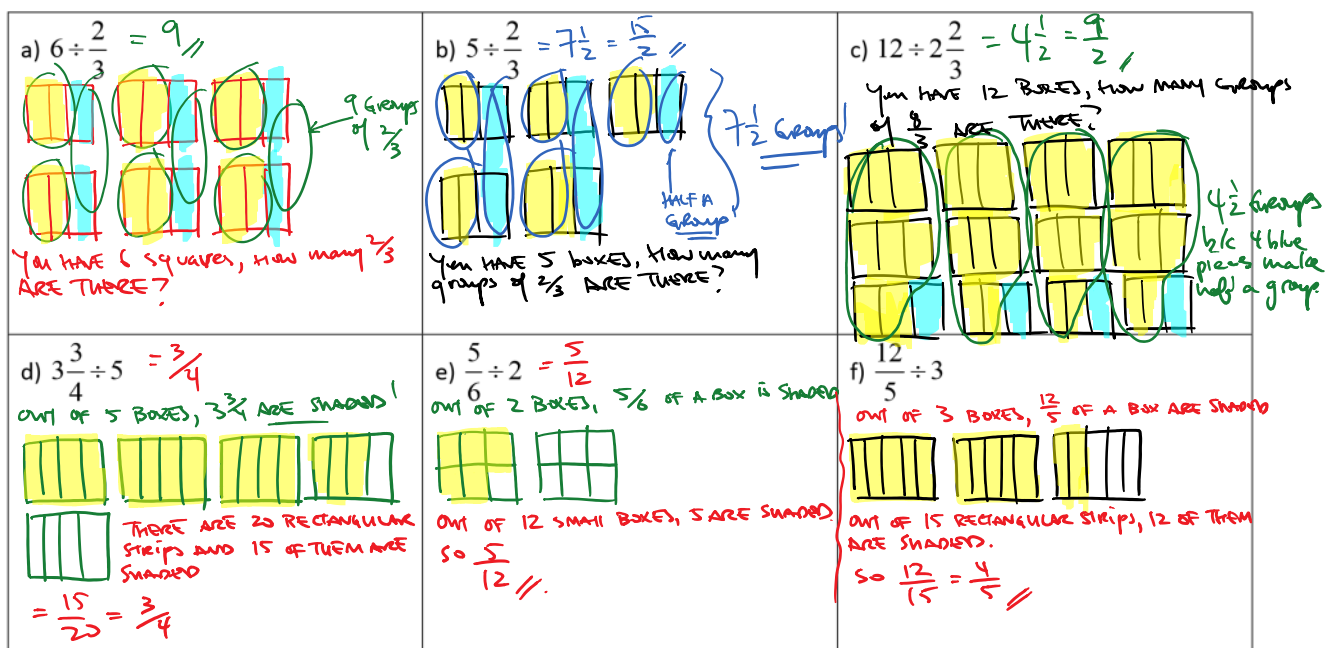 a) 6 ÷ 2/3 = 9 //
9 Groups
of 2/3
You HAVE 6 squares, How many 2/3
ARE THERE?
b) 5 ÷ 2/3 = 7 1/2 = 15/2 //
7 1/2 Groups!
HALF A
Group!
You HAVE 5 boxes, How many
groups of 2/3 ARE THERE?
c) 12 ÷ 2 2/3 = 4 1/2 = 9/2 //
You HAVE 12 BOXES, How MANY GROUPS
of 8/3 ARE THERE?
4 1/2 Groups
b/c 4 blue
pieces make
half a group.
d) 3 3/4 ÷ 5 = 3/4
OUT OF 5 BOXES, 3 3/4 ARE SHADED!
THERE ARE 20 RECTANGULAR
STRIPS AND 15 OF THEM ARE
SHADED
= 15/20 = 3/4
e) 5/6 ÷ 2 = 5/12
OUT OF 2 BOXES, 5/6 OF A BOX IS SHADED
OUT OF 12 SMALL BOXES, 5 ARE SHADED.
SO 5/12 //.
f) 12/5 ÷ 3
OUT OF 3 BOXES, 12/5 OF A BOX ARE SHADED
OUT OF 15 RECTANGULAR STRIPS, 12 OF THEM
ARE SHADED.
SO 12/15 = 4/5 //